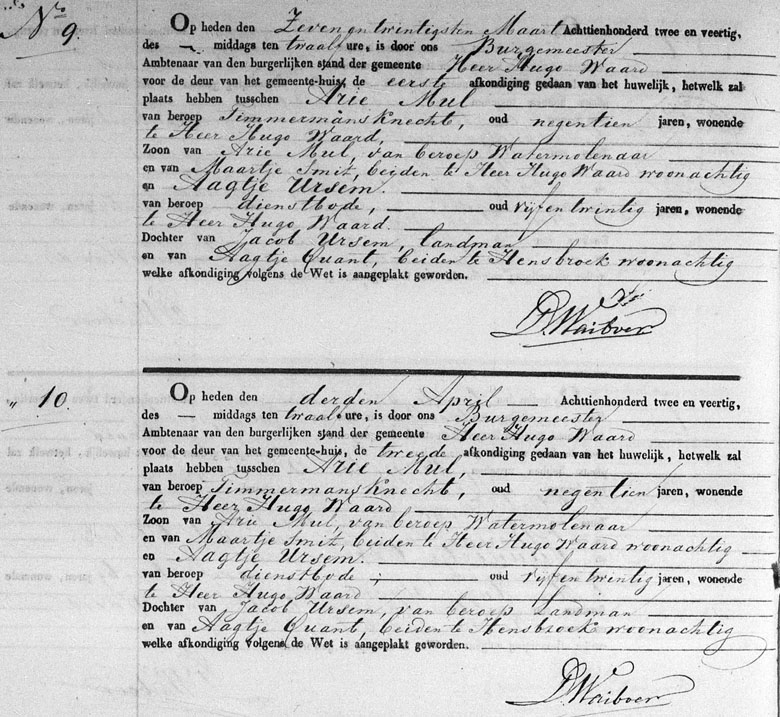 No. 9
Op heden den Zeven en twintigsten Maart Achttienhonderd twee en veertig,
des — middags ten twaalf ure, is door ons Burgemeester
Ambtenaar van den burgerlijken stand der gemeente Heer Hugo Waard
voor de deur van het gemeente-huis, de eerste afkondiging gedaan van het huwelijk, hetwelk zal
plaats hebben tusschen Arie Mul
van beroep Timmermans Knecht, oud negentien jaren, wonende
te Heer Hugo Waard,
Zoon van Arie Mul, van beroep Watermolenaar
en van Maartje Smit, beiden te Heer Hugo Waard woonachtig
en Aagtje Ursem.
van beroep dienstbode, oud vijf en twintig jaren, wonende
te Heer Hugo Waard.
Dochter van Jacob Ursem, landman
en van Aagtje Quant, beiden te Hensbroek woonachtig
welke afkondiging volgens de Wet is aangeplakt geworden.
D. Waiboer
" 10.
Op heden den derden April — Achttienhonderd twee en veertig,
des — middags ten twaalf ure, is door ons Burgemeester
Ambtenaar van den burgerlijken stand der gemeente Heer Hugo Waard
voor de deur van het gemeente-huis, de tweede afkondiging gedaan van het huwelijk, hetwelk zal
plaats hebben tusschen Arie Mul,
van beroep Timmermans Knecht, oud negentien jaren, wonende
te Heer Hugo Waard
Zoon van Arie Mul, van beroep Watermolenaar
en van Maartje Smit, beiden te Heer Hugo Waard woonachtig
en Aagtje Ursem.
van beroep dienstbode, oud vijf en twintig jaren, wonende
te Heer Hugo Waard
Dochter van Jacob Ursem, van beroep Landman
en van Aagtje Quant, beiden te Hensbroek woonachtig
welke afkondiging volgens de Wet is aangeplakt geworden.
D. Waiboer